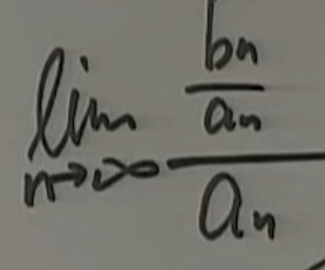 lim n→∞ (bn/an)/an